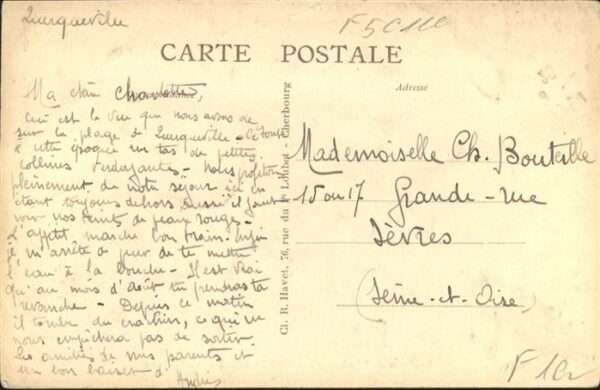 Querqueville
F5C110
CARTE POSTALE
Adresse
Ma chère Charlotte,
Ceci est la vue que nous avons de
sur la plage de Querqueville -
à cette époque un tas de petites
collines verdoyantes - Nous profitons
pleinement de notre séjour ici en
étant toujours dehors aussi il faut
voir nos teints de peaux rouges -
L'appétit marche bon train. Enfin
je m'arrête de peur de te mettre
l'eau à la bouche - Il est vrai
qu'au mois d'août tu prendras ta
revanche - Depuis ce matin
il tombe du crachin, ce qui ne
nous empêchera pas de sortir.
Les amitiés de mes parents et
un bon baiser d'
Andrée
Cl. B. Havet, 76, rue du Loubet - Cherbourg
Mademoiselle Ch. Bouteille
15 ou 17 Grande-rue
Sèvres
(Seine-et-Oise)